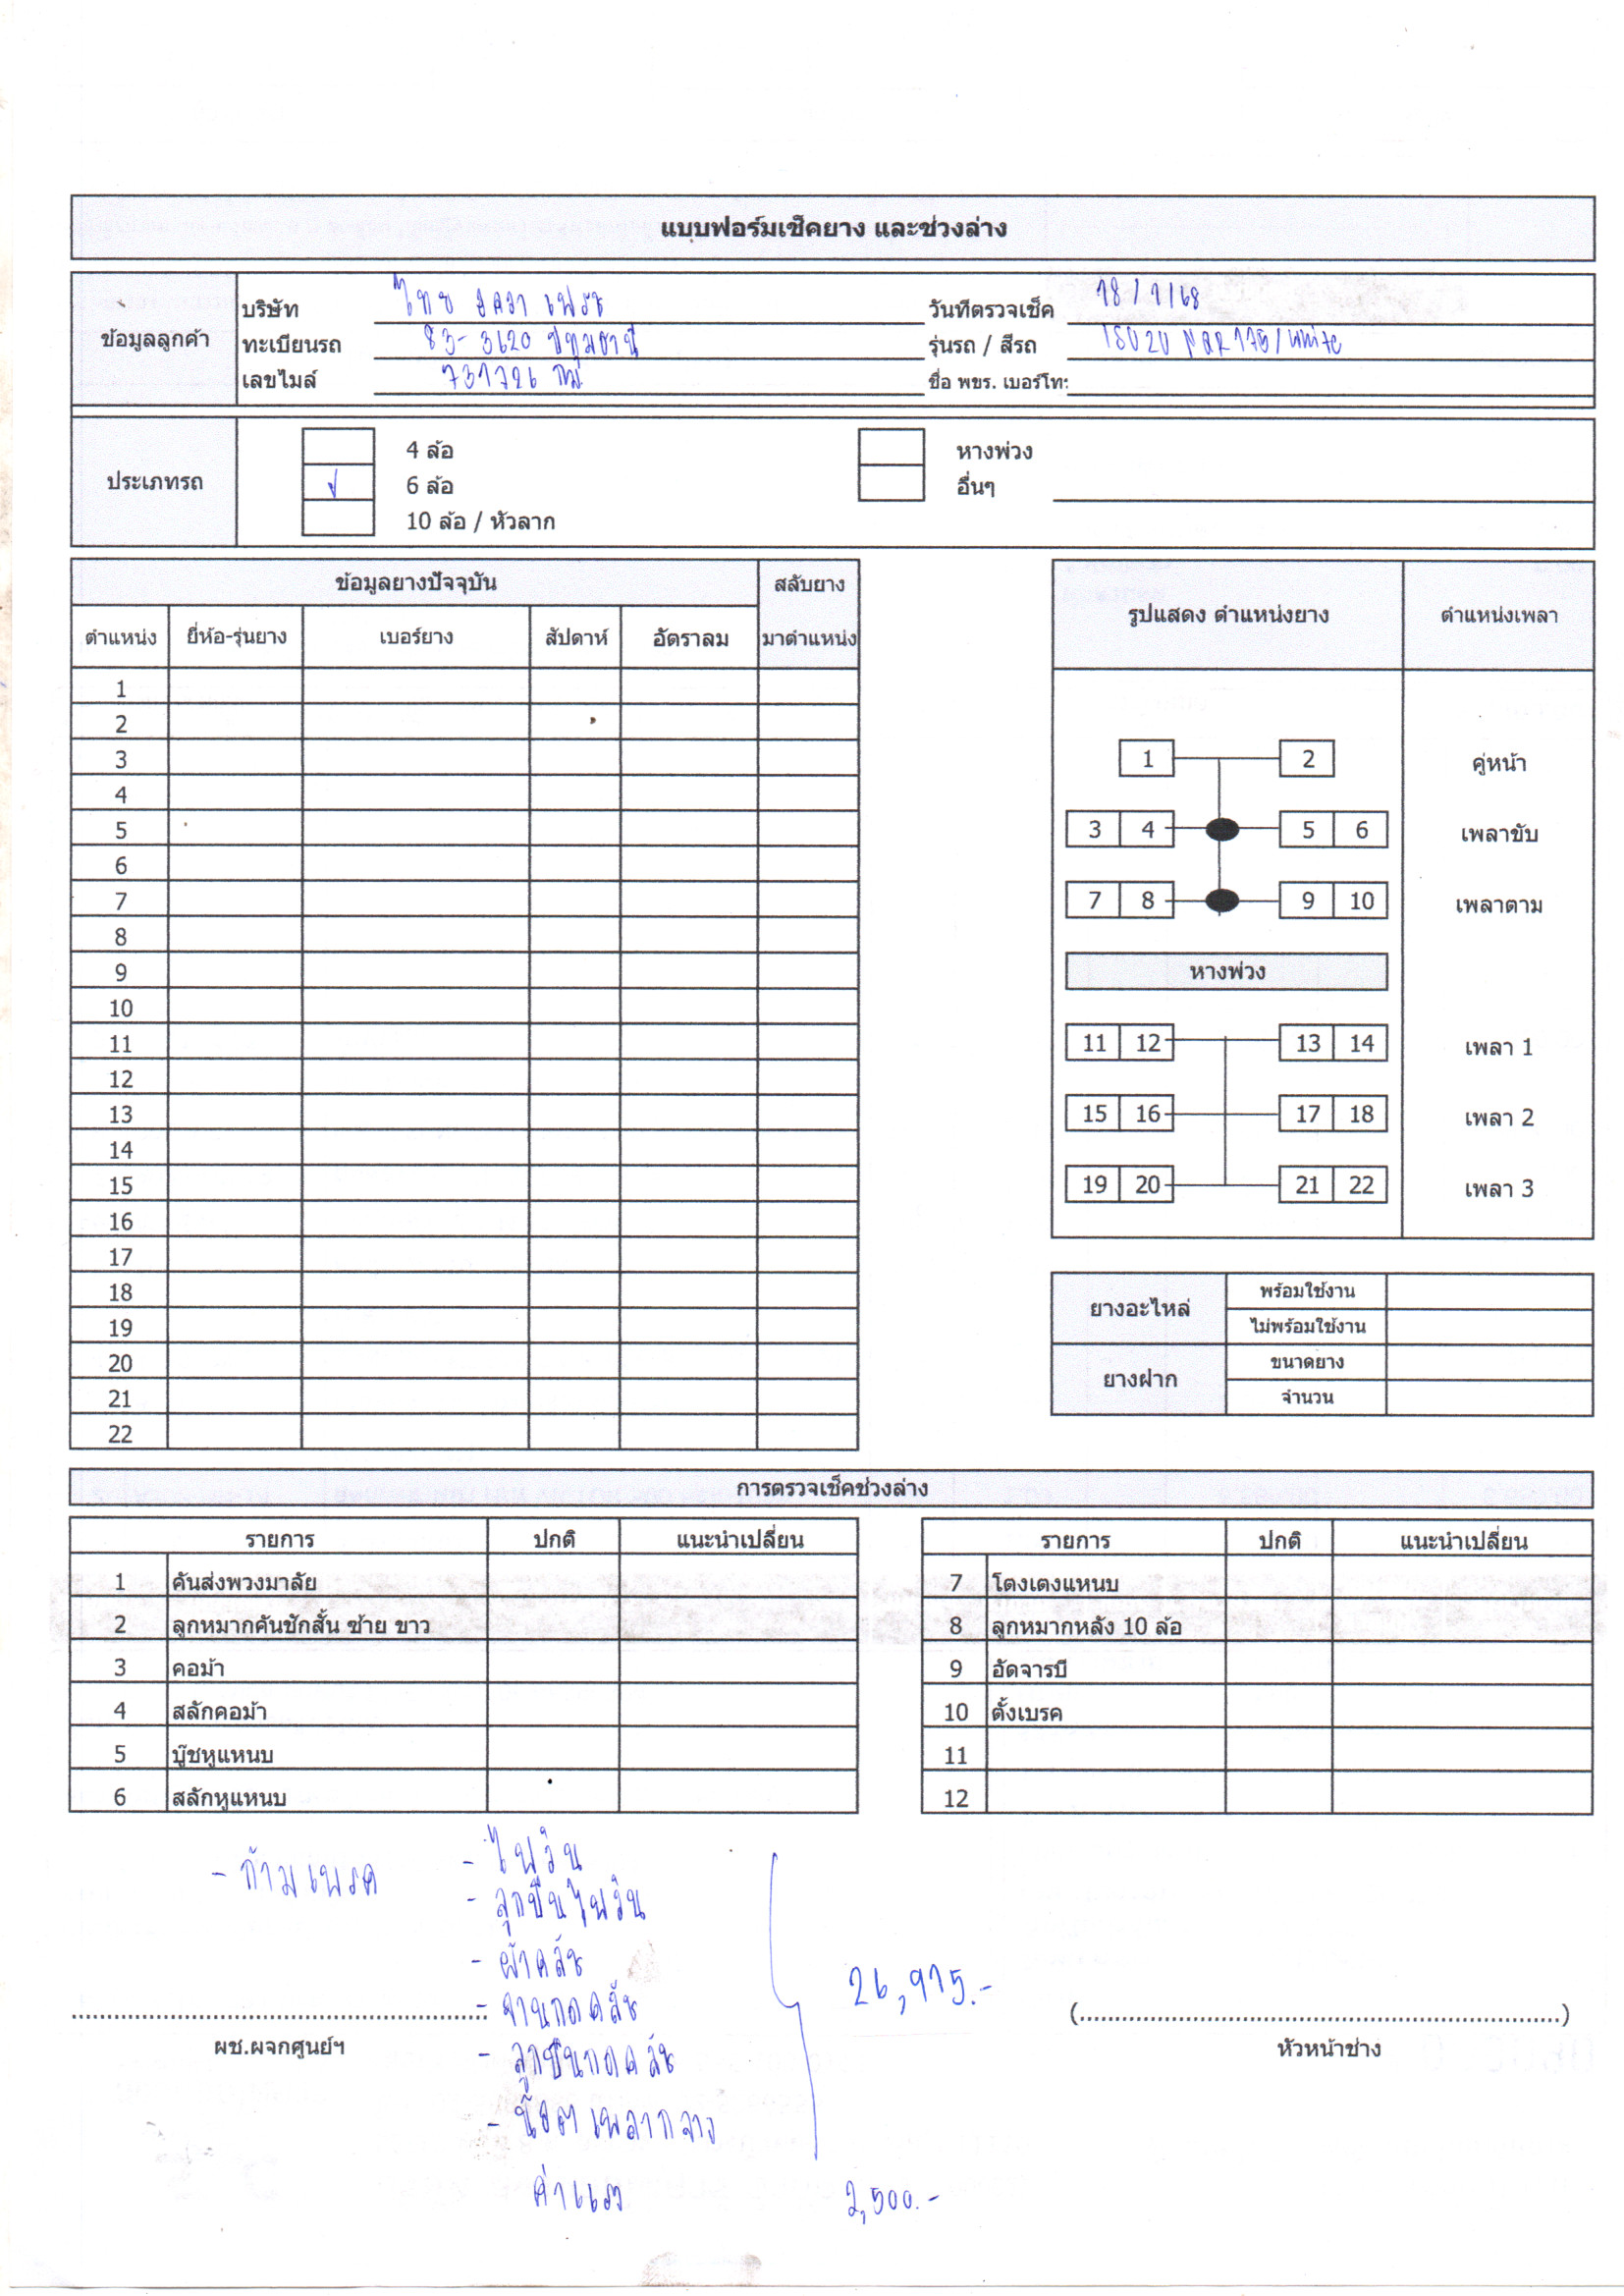 แบบฟอร์มเช็คยาง และช่วงล่าง
ข้อมูลลูกค้า
บริษัท ไทย
วันที่ตรวจเช็ค 18/1/68
ทะเบียนรถ 83-3620 ปทุมธานี
รุ่นรถ / สีรถ White
เลขไมล์ 731726 กม
ชื่อ พขร. เบอร์โท:
ประเภทรถ
4 ล้อ หางพ่วง
√ 6 ล้อ อื่นๆ
10 ล้อ / หัวลาก
ข้อมูลยางปัจจุบัน สลับยาง
ตำแหน่ง ยี่ห้อ-รุ่นยาง เบอร์ยาง สัปดาห์ อัตราลม มาตำแหน่ง
1
2
3
4
5
6
7
8
9
10
11
12
13
14
15
16
17
18
19
20
21
22
รูปแสดง ตำแหน่งยาง ตำแหน่งเพลา
1 2 คู่หน้า
3 4 5 6 เพลาขับ
7 8 9 10 เพลาตาม
หางพ่วง
11 12 13 14 เพลา 1
15 16 17 18 เพลา 2
19 20 21 22 เพลา 3
ยางอะไหล่ พร้อมใช้งาน
ไม่พร้อมใช้งาน
ยางฝาก ขนาดยาง
จำนวน
การตรวจเช็คช่วงล่าง
รายการ ปกติ แนะนำเปลี่ยน
1 คันส่งพวงมาลัย
2 ลูกหมากคันชักสั้น ซ้าย ขาว
3 คอม้า
4 สลักคอม้า
5 บู๊ชหูแหนบ
6 สลักหูแหนบ
รายการ ปกติ แนะนำเปลี่ยน
7 โตงเตงแหนบ
8 ลูกหมากหลัง 10 ล้อ
9 อัดจารบี
10 ตั้งเบรค
11
12
- ก้ามเบรค
- ไฟวีน
- ลูกปืนไฟวีน
- ผ้าคลัช
- จานกดคลัช
- ลูกปืนกดคลัช
- น๊อตเพลากลาง
26,975.-
ค่าแรง 2,500.-
ผช.ผจกศูนย์ฯ
(....................)
หัวหน้าช่าง